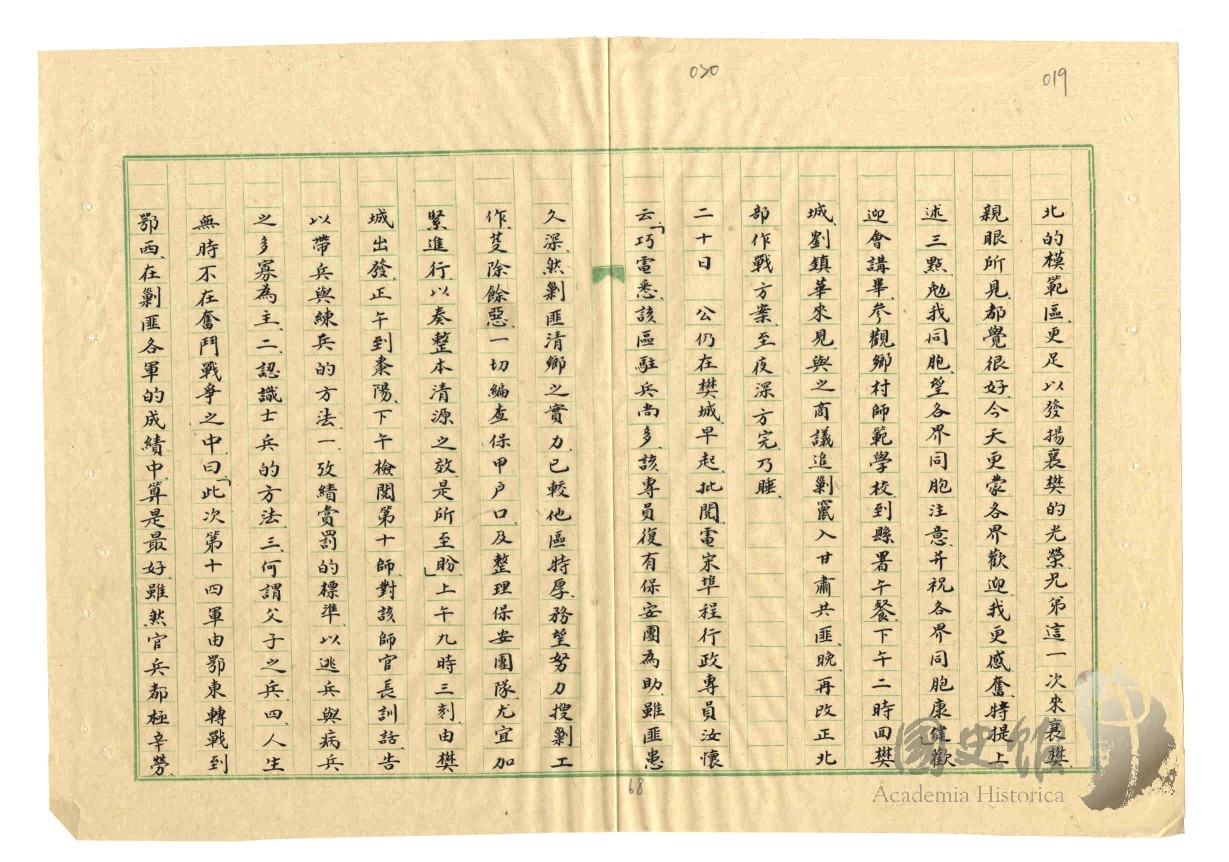 030
019
北的模範區更足以發揚襄樊的光榮兄弟這一次來襄樊、
親眼所見、都覺很好、今天更蒙各界歡迎、我更感奮、特提上
述三點、勉我同胞、望各界同胞注意、并祝各界同胞康健歡
迎會講畢、參觀鄉村師範學校、到縣署午餐、下午二時、回樊
城、劉鎮華來見、與之商議追剿竄入甘肅共匪、晚、再改正北
部作戰方案、至夜深方完、乃睡、
二十日　公仍在樊城、早起、批閱、電宋埠程行政專員汝懷
云、「巧電悉、該區駐兵尚多、該專員復有保安團為助、雖匪患
久深、然剿匪清鄉之實力、已較他區特厚、務望努力搜剿工
作、芟除餘惡、一切編查保甲戶口、及整理保安團隊、尤宜加
緊進行、以奏整本清源之效、是所至盼」上午九時三刻、由樊
城出發、正午到棗陽、下午檢閱第十師、對該師官長訓話、告
以帶兵與練兵的方法、一、攷績賞罰的標準、以逃兵與病兵
之多寡為主、二、認識士兵的方法、三、何謂父子之兵、四、人生
無時不在奮鬥戰爭之中、曰、「此次第十四軍由鄂東轉戰到
鄂西、在剿匪各軍的成績中、算是最好、雖然官兵都極辛勞、
68
國史館
Academia Historica